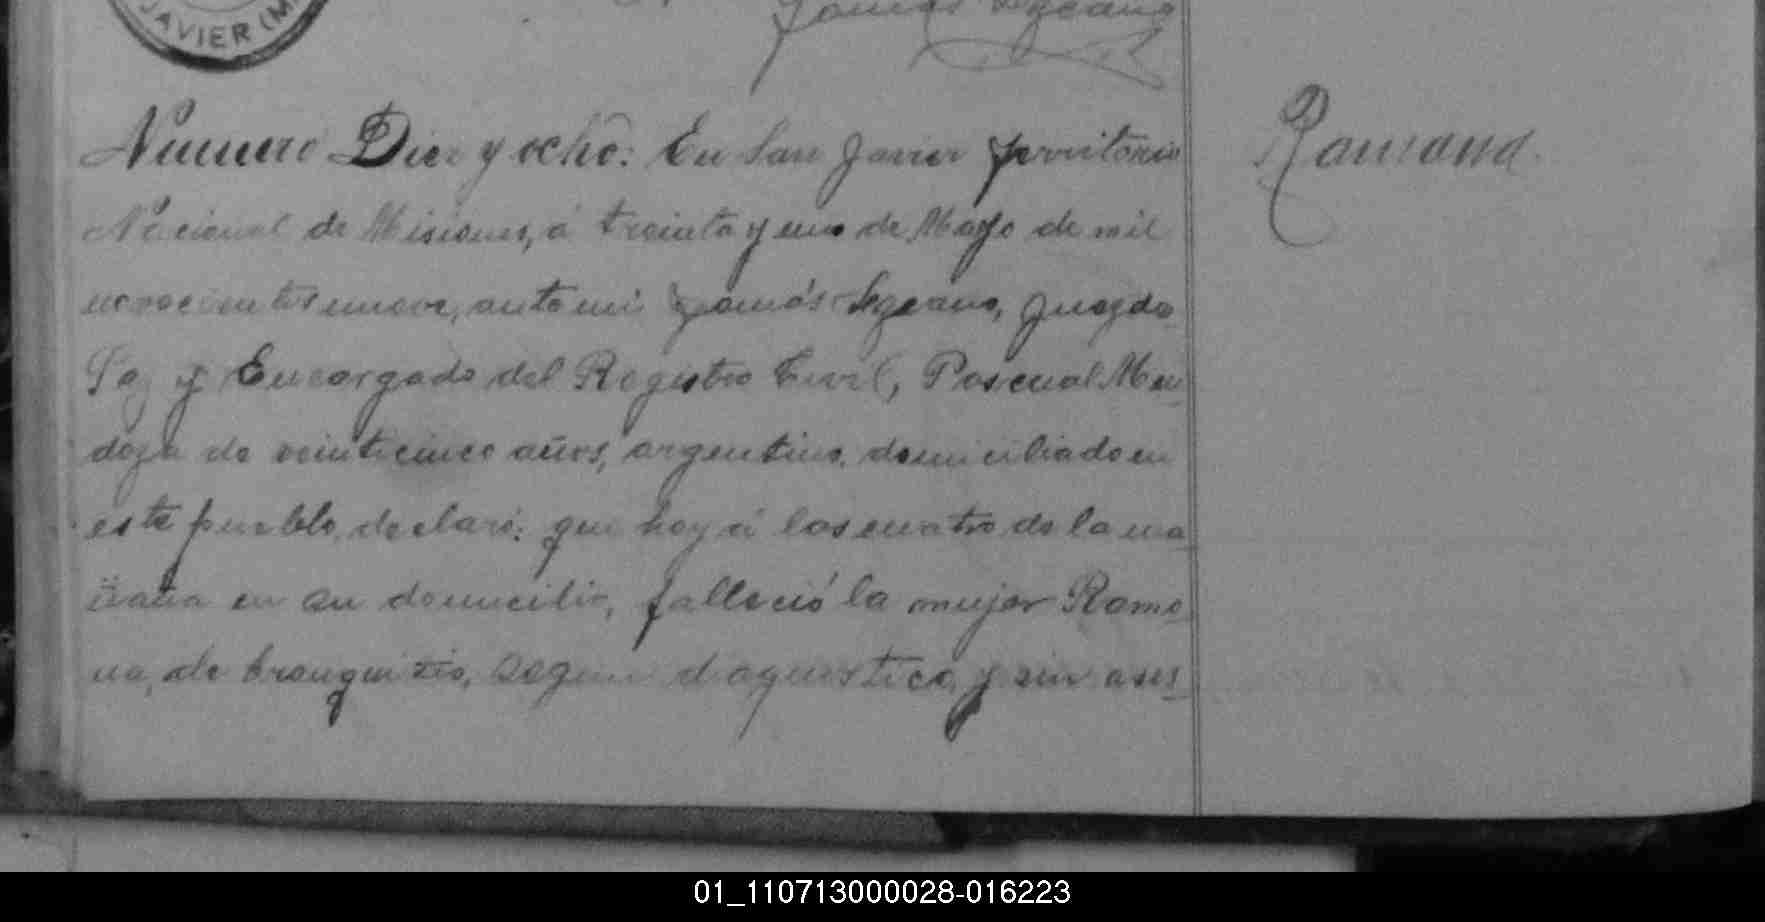 JAVIER (M
Tomás Lezcano
Numero Diez y ocho: En San Javier Territorio
Ramona
Nacional de Misiones, á treinta y uno de Mayo de mil
novecientos nueve, ante mi Tomás Lezcano, Juez de
Paz y Encargado del Registro Civil, Pascual Men_
doza de veinticinco años, argentino, domiciliado en
este pueblo, declaró: que hoy á las cuatro de la ma_
ñana en su domicilio, falleció la mujer Ramo_
na, de bronquitis, segun diagnostico, y sin asis_
01_110713000028-016223